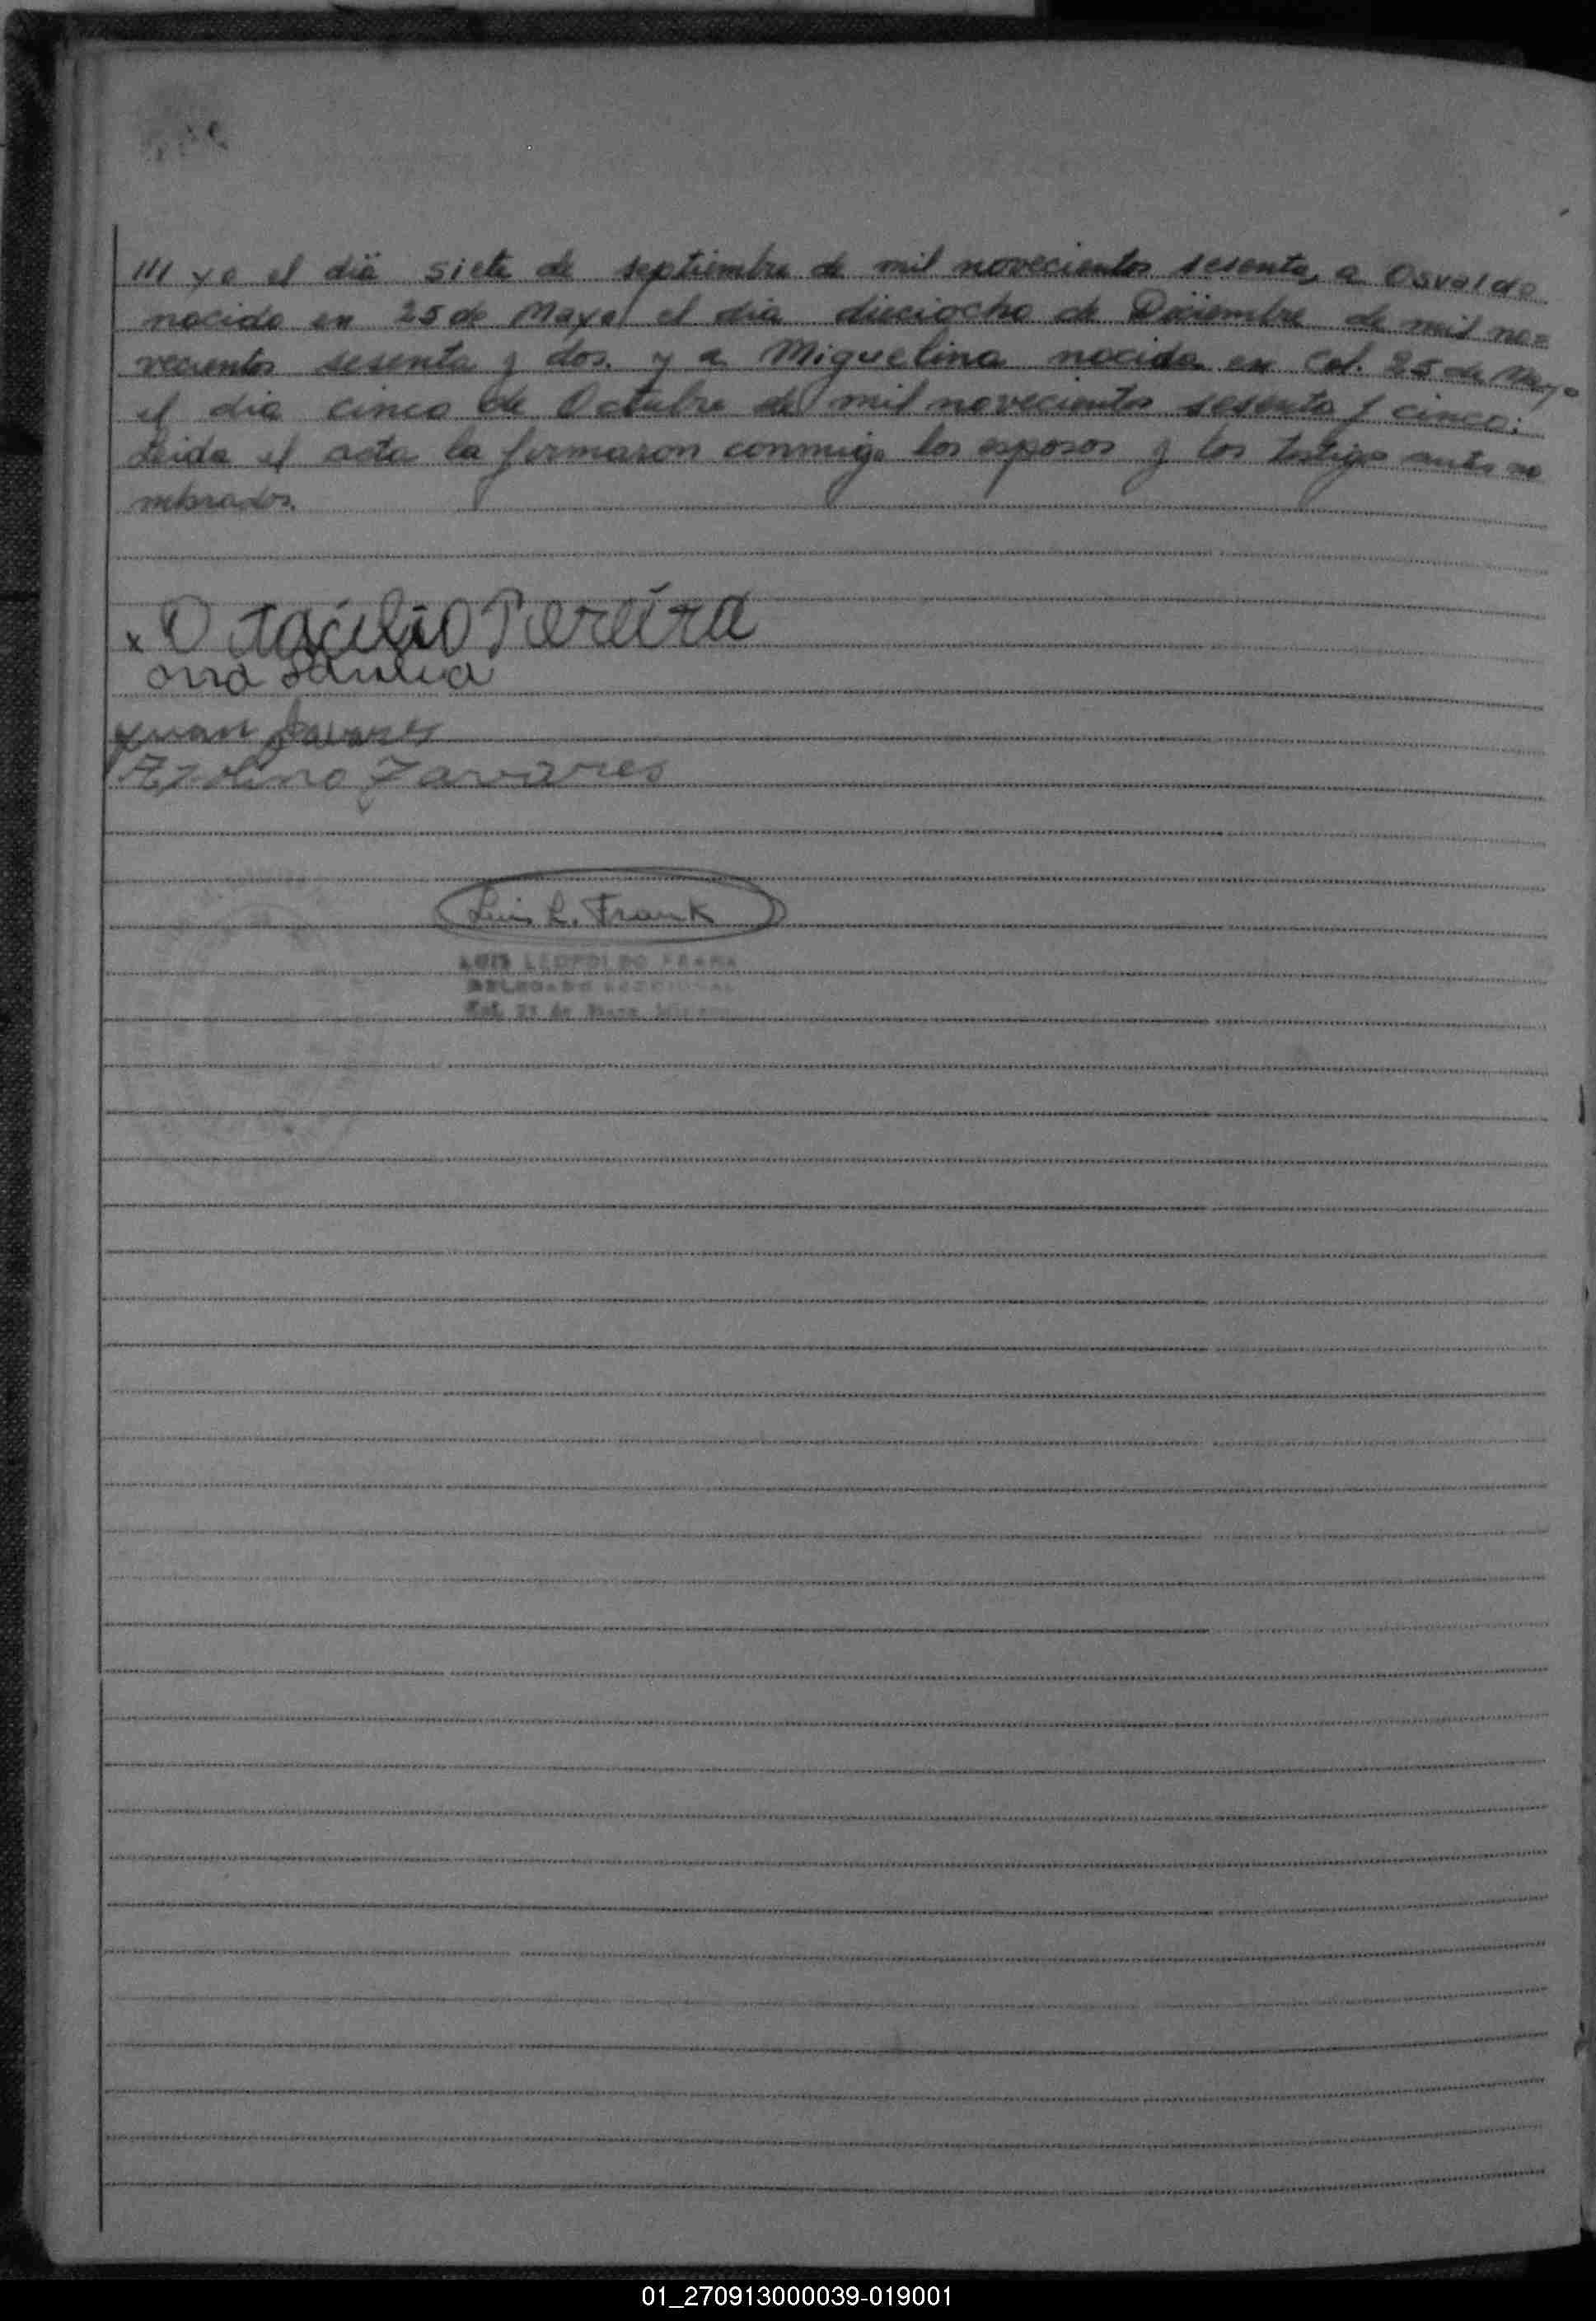 /// yo el día siete de septiembre de mil novecientos sesenta, a Osvaldo
nacido en 25 de Mayo el dia dieciocho de Diciembre de mil no=
vecientos sesenta y dos. y a Miguelina nacida en Col. 25 de Mayo
el dia cinco de Octubre de mil novecientos sesenta y cinco.
Leida el acta la firmaron conmigo los esposos y los testigo antes no
mbrados.
x Otacilio Pereira
Juan Tavares
Tavares
Luis L. Frank
LUIS LEOPOLDO FRANK
DELEGADO SECCIONAL
Col. 25 de Mayo
01_270913000039-019001